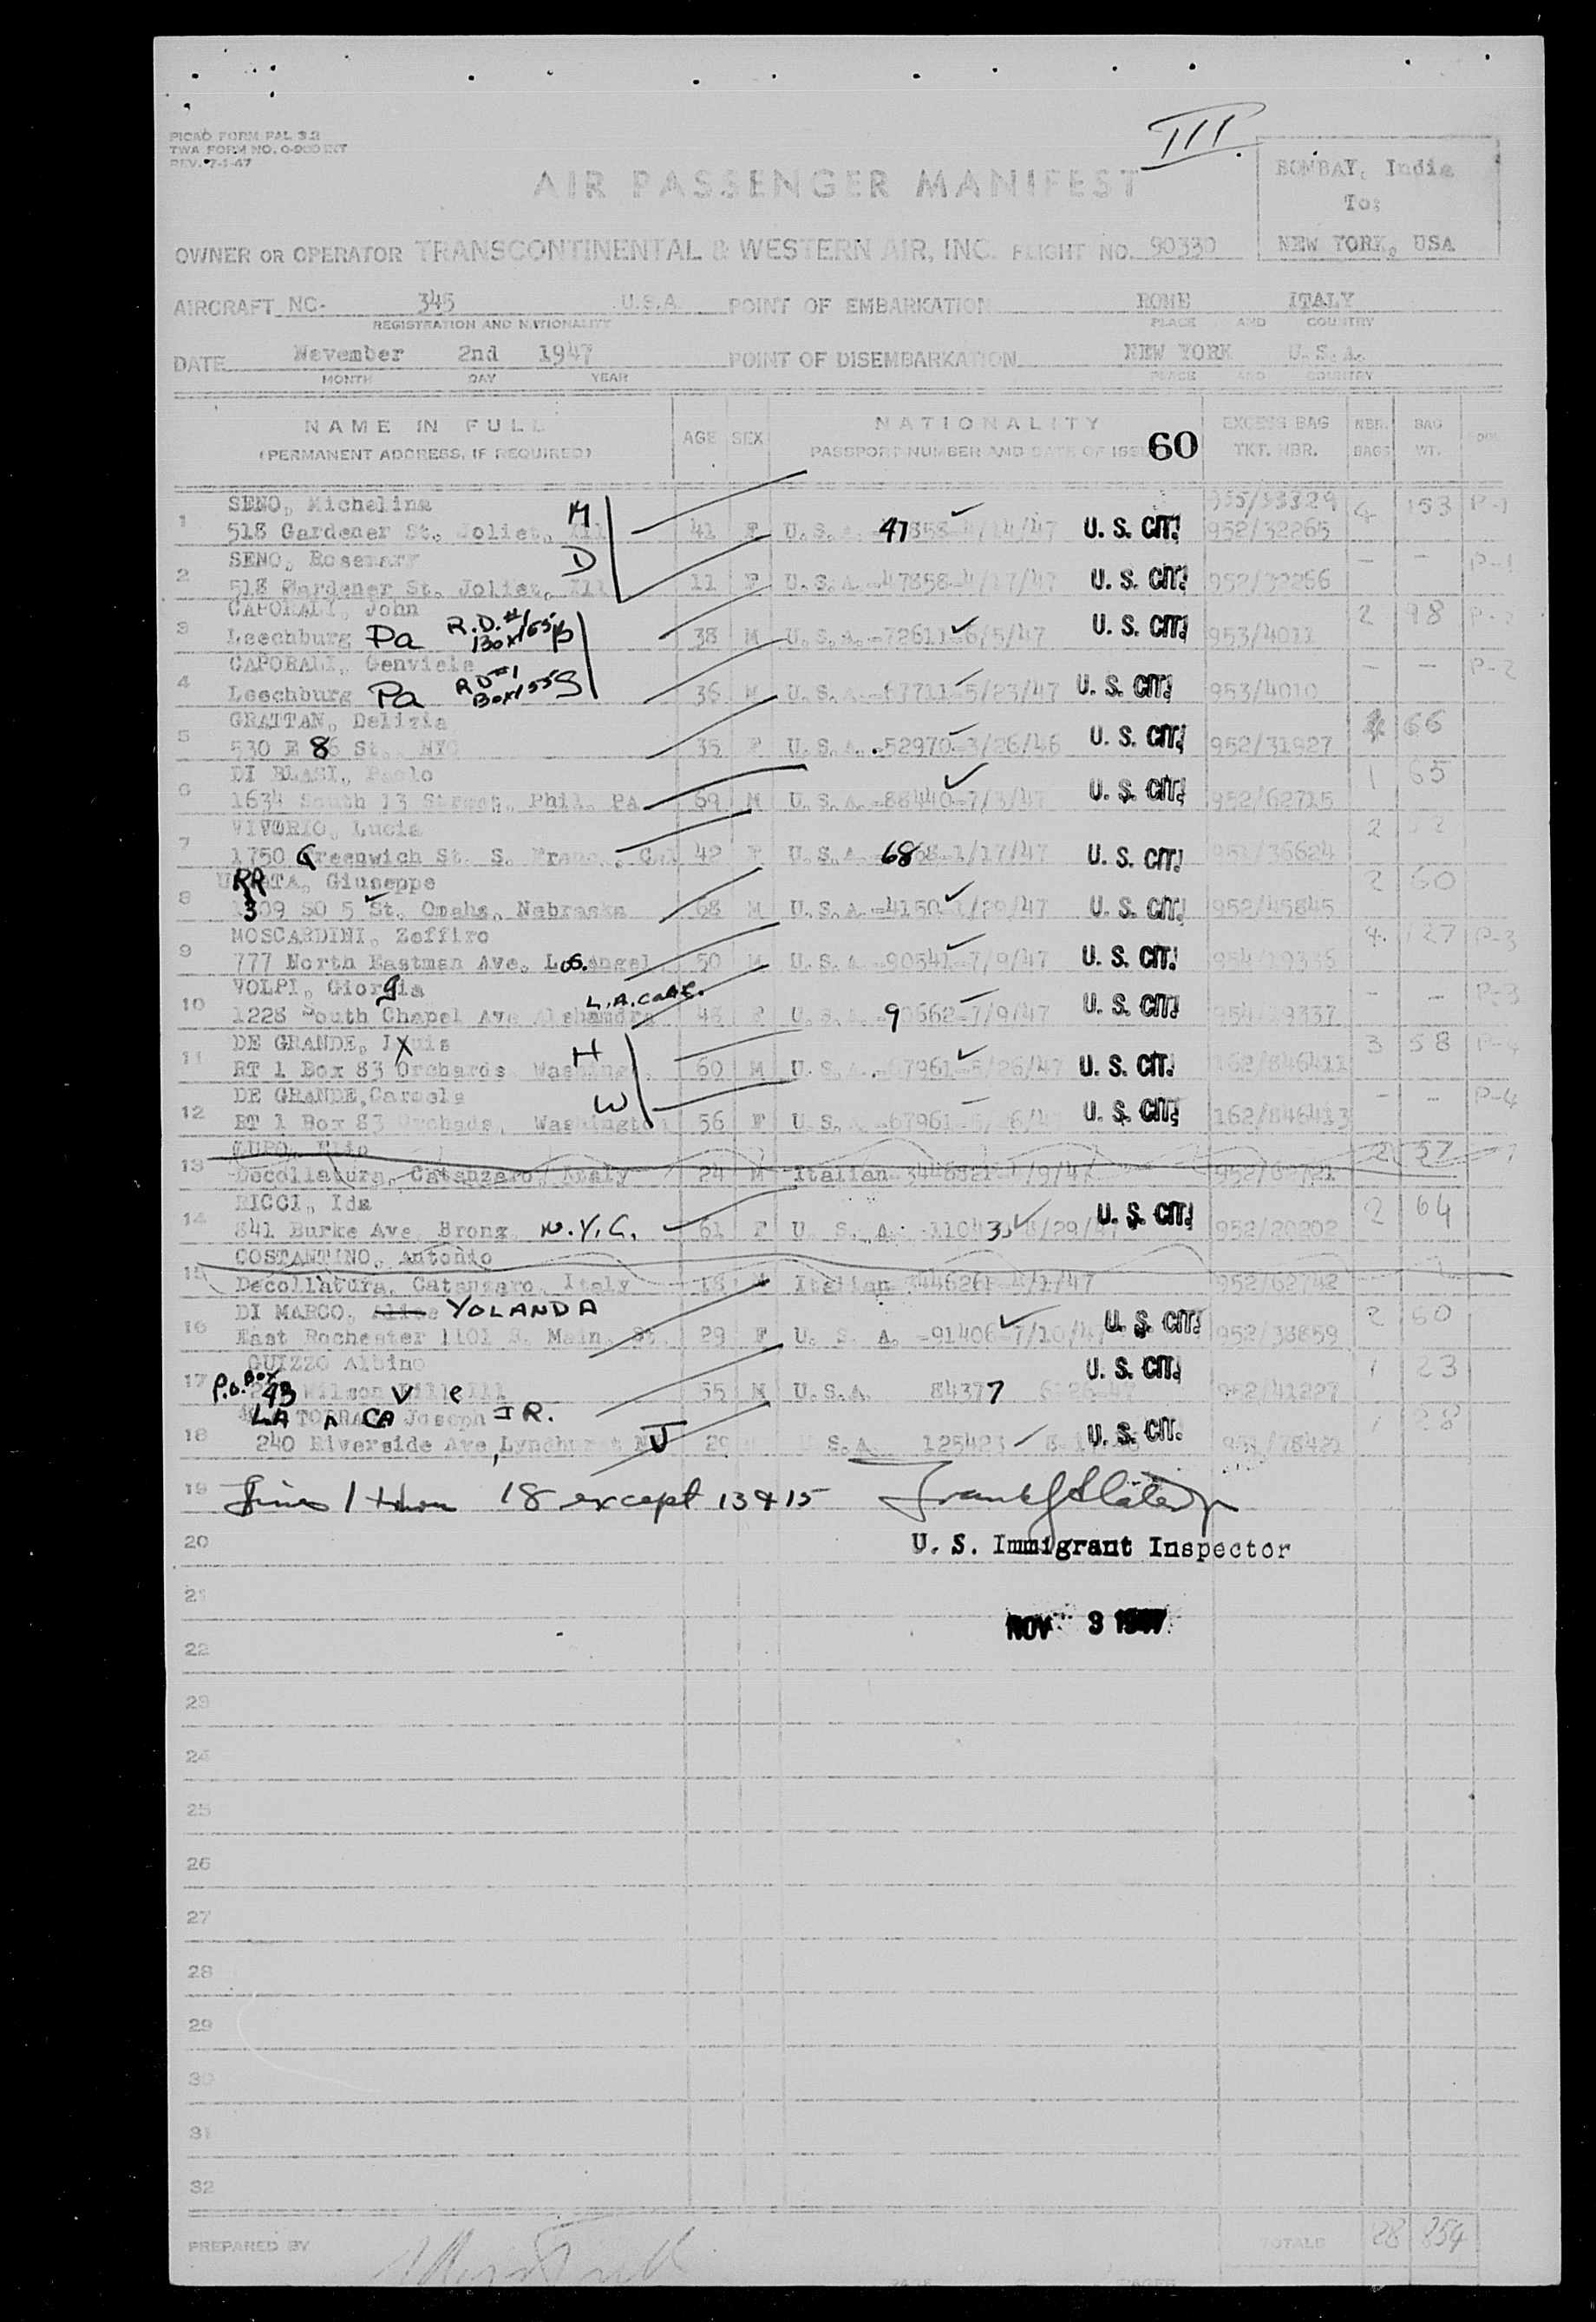 III.
PICAO FORM PAL 3.2
TWA FORM NO. 0-900 INT
REV. 7-1-47
BOMBAY, India
To:
NEW YORK, USA
AIR PASSENGER MANIFEST
OWNER OR OPERATOR TRANSCONTINENTAL & WESTERN AIR, INC. FLIGHT NO. 90330
AIRCRAFT NC- 345 U.S.A. POINT OF EMBARKATION ROME ITALY
REGISTRATION AND NATIONALITY PLACE AND COUNTRY
DATE November 2nd 1947 POINT OF DISEMBARKATION NEW YORK U.S.A.
MONTH DAY YEAR PLACE AND COUNTRY
NAME IN FULL AGE SEX NATIONALITY EXCESS BAG NBR. BAG
(PERMANENT ADDRESS, IF REQUIRED) PASSPORT NUMBER AND DATE OF ISSUE 60 TKT. NBR. BAGS WT.
SENO, Michelina M 955/33329
1 518 Gardener St., Joliet, Ill 41 F U.S.A. 47858-4/14/47 U. S. CIT. 952/32265 4 153 P-1
SENO, Rosemary D
2 518 Wardener St. Joliet, Ill 11 F U.S.A.-47858-4/17/47 U. S. CIT. 952/32266 - - P-1
CAPORALI, John R.D.#1 Box 155 B
3 Leechburg Pa 38 M U.S.A.-72611-6/5/47 U. S. CIT. 953/4011 2 98 P-2
CAPORALI, Genviele RD#1 Box 155 S
4 Leechburg Pa 36 M U.S.A.-67711-5/23/47 U. S. CIT. 953/4010 - - P-2
GRATTAN, Delizia
5 530 E 86 St., NYC 35 F U.S.A.-52970-3/26/46 U. S. CIT. 952/31927 66
DI BLASI, Paolo
6 1634 South 13 Street, Phil. PA 69 M U.S.A.-88440-7/3/47 U. S. CIT. 952/62715 1 65
VIVORIO, Lucia
7 1750 Greenwich St. S. Franc., Cal 42 F U.S.A. 6868-1/17/47 U. S. CIT. 951/36624 2
URRATA, Giuseppe
8 1309 SO 5 St. Omaha, Nebraska 68 M U.S.A.-4150-1/29/47 U. S. CIT. 952/45845 2 60
MOSCARDINI, Zeffiro
9 777 North Eastman Ave, Los.Angel 50 M U.S.A-90541-7/9/47 U. S. CIT. 954/19336 4 127 P-3
VOLPI, Giorgia L.A. Calif.
10 1228 South Chapel Ave Alehamdra 43 F U.S.A.-90662-7/9/47 U. S. CIT. 954/19337 - - P-3
DE GRANDE, Luis H
11 RT 1 Box 83 Orchards Washing. 60 M U.S.A.-67961-5/26/47 U. S. CIT. 162/846411 3 58 P-4
DE GRANDE, Carmela W
12 RT 1 Box 83 Orchads, Washington 56 F U.S.A.-67961-5/26/47 U. S. CIT. 162/846413 - - P-4
ZUPO, Elio
13 Decollatura, Catanzaro, Italy 24 M Italian 2 57
RICCI, Ida
14 841 Burke Ave Bronx N.Y.C. 61 F U. S. A. 110433 8/29/47 U. S. CIT. 952/20202 2 64
COSTANTINO, Antonio
15 Decollatura, Catanzaro, Italy 18 M Italian 344626P-4/1/47 952/62742
DI MARCO, Alice YOLANDA
16 East Rochester 1101 S. Main. St. 29 F U. S. A. -91406-7/10/47 U. S. CIT. 952/38859 2 60
GUIZZO Albino
17 P.O. Box 43 Wilsonville Ill 55 M U.S.A. 84377 6/26/47 U. S. CIT. 952/41227 1 23
LA TORRACA Joseph JR.
18 240 Riverside Ave, Lyndhurst NJ 29 U.S.A. 125423 U. S. CIT. 951/78421 1 28
19 Lines 1 thru 18 except 13 & 15
20 U. S. Immigrant Inspector
21
NOV 3 1947
22
23
24
25
26
27
28
29
30
31
32
PREPARED BY TOTALS 28 854